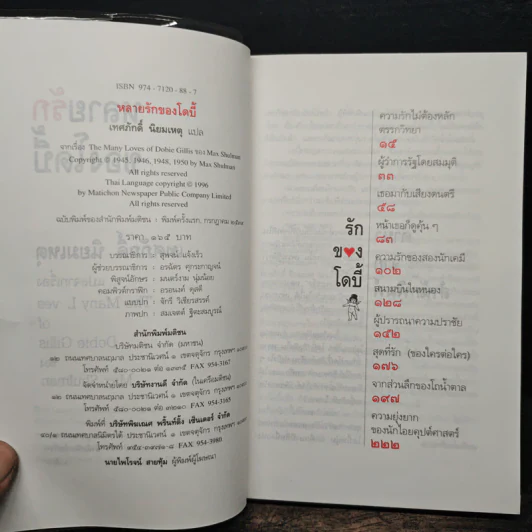 ISBN 974 - 7120 - 88 - 7
หลายรักของโดบี้
เทศภักดิ์ นิยมเหตุ แปล
จากเรื่อง The Many Loves of Dobie Gillis ของ Max Shulman
Copyright © 1945, 1946, 1948, 1950 by Max Shulman
All rights reserved
Thai Language copyright © 1996
by Matichon Newspaper Public Company Limited
All rights reserved
ฉบับพิมพ์ของสำนักพิมพ์มติชน : พิมพ์ครั้งแรก, กรกฎาคม ๒๕๓๙
ราคา ๑๖๕ บาท
บรรณาธิการ : สุพจน์ แจ้งเร็ว
ผู้ช่วยบรรณาธิการ : อรฉัตร ศุกระกาญจน์
พิสูจน์อักษร : มนตร์งาม นุ่มน้อย
คอมพิวต์กราฟิก : อรอนงค์ ดุสดี
แบบปก : จักรี วิเชียรสรรค์
ภาพปก : สมเจตต์ ฐิตะสมบูรณ์
สำนักพิมพ์มติชน
บริษัทมติชน จำกัด (มหาชน)
๑๒ ถนนเทศบาลนฤมาล ประชานิเวศน์ ๑ เขตจตุจักร กรุงเทพฯ
โทรศัพท์ ๕๘๐-๐๐๒๑ ต่อ ๑๓๓๕ FAX 954-3167
จัดจำหน่ายโดย บริษัทงานดี จำกัด (ในเครือมติชน)
๑๒ ถนนเทศบาลนฤมาล ประชานิเวศน์ ๑ เขตจตุจักร กรุงเทพฯ
โทรศัพท์ ๕๘๐-๐๐๒๑ ต่อ FAX 954-3165
พิมพ์ที่ บริษัทพิฆเณศ พริ้นท์ติ้ง เซ็นเตอร์ จำกัด
ถนนเทศบาลนิมิตรใต้ ประชานิเวศน์ ๑ เขตจตุจักร กรุงเทพฯ
โทรศัพท์ FAX 954-3980
นายไพโรจน์ สายทุ้ม ผู้พิมพ์ผู้โฆษณา
รัก
ข♥ง
โดบี้
ความรักไม่ต้องหลัก
ตรรกวิทยา
๑๕
ผู้ว่าการรัฐโดยสมมุติ
๓๓
เธอมากับเสียงดนตรี
๕๘
หน้าเธอก็ดูคุ้น ๆ
๘๓
ความรักของสองนักเคมี
๑๐๒
สนามบินในหนอง
๑๒๘
ผู้ปรารถนาความปราชัย
๑๕๒
สุดที่รัก (ของใครต่อใคร)
๑๗๖
จากส่วนลึกของโถน้ำตาล
๑๙๗
ความยุ่งยาก
ของนักไอยคุปต์ศาสตร์
๒๒๒